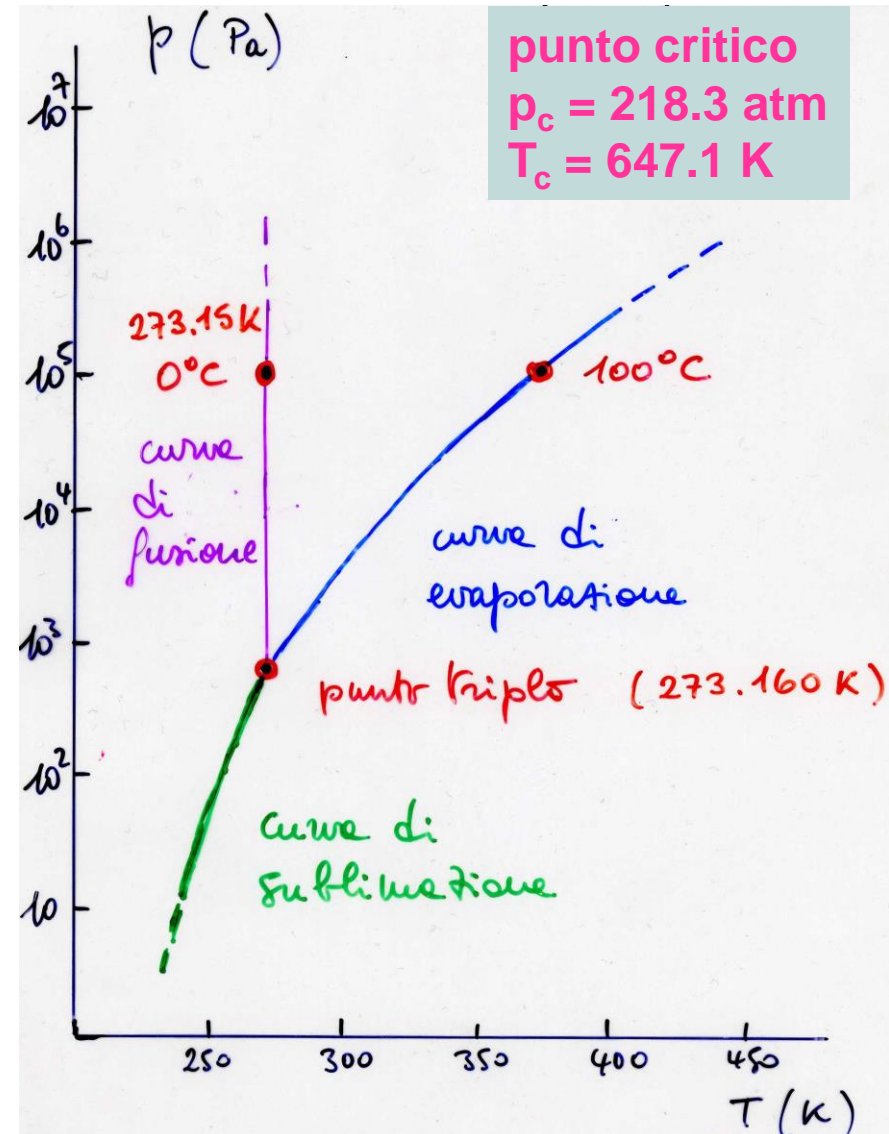 p (Pa)
punto critico
p_c = 218.3 atm
T_c = 647.1 K
10^7
10^6
273.15K
10^5
0°C
100°C
curva
di
fusione
10^4
curva di
evaporazione
10^3
punto triplo (273.160 K)
10^2
curva di
sublimazione
10
250 300 350 400 450
T (K)